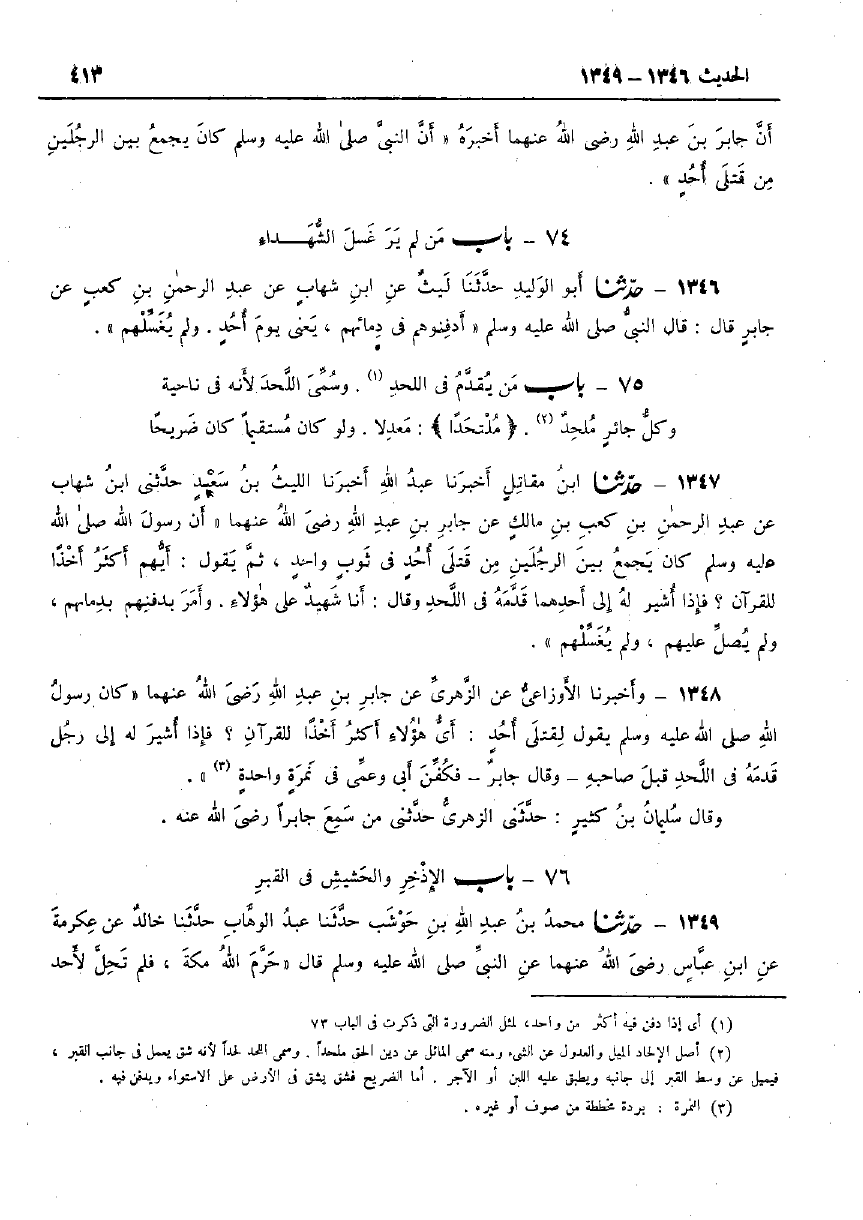 الحديث ١٣٤٦ – ١٣٤٩
٤١٣
أَنَّ جابرَ بنَ عبدِ اللهِ رضى اللهُ عنهما أَخبرَهُ « أَنَّ النبىَّ صلىٰ الله عليه وسلم كانَ يجمعُ بين الرجُلَينِ
مِن قَتلَى أُحُدٍ » .
٧٤ – باب مَن لم يَرَ غَسلَ الشُّهَداء
١٣٤٦ – حدّثنا أبو الوَليدِ حدَّثَنَا لَيثٌ عنِ ابنِ شهابٍ عن عبدِ الرحمٰنِ بنِ كعبٍ عن
جابرٍ قال : قال النبىُّ صلى الله عليه وسلم « أدفِنوهم فى دِمائهم ، يَعنى يومَ أُحُدٍ . ولم يُغَسِّلْهم » .
٧٥ – باب مَن يُقدَّمُ فى اللحدِ (١) . وسُمِّىَ اللَّحدَ لأنه فى ناحية
وكلُّ جائرٍ مُلحِدٌ (٢) . ﴿ مُلْتحَدًا ﴾ : مَعدِلا . ولو كان مُستقيماً كان ضَريحًا
١٣٤٧ – حدّثنا ابنُ مقاتِلٍ أخبرَنا عبدُ اللهِ أخبرَنا الليثُ بنُ سَعْيدٍ حدَّثنى ابنُ شهاب
عن عبدِ الرحمٰنِ بنِ كعبِ بنِ مالكٍ عن جابرِ بنِ عبدِ اللهِ رضىَ اللهُ عنهما « أن رسولَ الله صلىٰ الله
عليه وسلم كان يَجمعُ بينَ الرجُلَينِ مِن قتلَى أُحُدٍ فى ثَوبٍ واحدٍ ، ثمَّ يَقول : أيُّهم أكثرُ أخْذًا
للقرآن ؟ فإذا أُشير لهُ إلى أحدِهما قدَّمَهُ فى اللَّحدِ وقال : أنا شَهيدٌ على هٰؤلاءِ . وأمَرَ بدفنِهم بدِمائهم ،
ولم يُصلِّ عليهم ، ولم يُغَسِّلْهم » .
١٣٤٨ – وأخبرنا الأوزاعىُّ عن الزُّهرىِّ عن جابرِ بنِ عبدِ اللهِ رَضىَ اللهُ عنهما «كان رسولُ
اللهِ صلى الله عليه وسلم يقول لِقتلَى أُحُدٍ : أىُّ هٰؤُلاءِ أكثرُ أخْذًا للقرآنِ ؟ فإذا أُشيرَ له إلى رجُل
قدمَهُ فى اللَّحدِ قبلَ صاحبهِ – وقال جابرٌ – فكُفِّنَ أبى وعمِّى فى نَمِرَةٍ واحدةٍ (٣) » .
وقال سُليمانُ بنُ كثيرٍ : حدَّثَنى الزهرىُّ حدَّثنى من سَمِعَ جابراً رضىَ الله عنه .
٧٦ – باب الإذْخِرِ والحَشيشِ فى القبرِ
١٣٤٩ – حدّثنا محمدُ بنُ عبدِ اللهِ بنِ حَوْشَب حدَّثَنا عبدُ الوهَّابِ حدَّثَنا خالدٌ عن عِكرمةَ
عنِ ابنِ عبَّاسٍ رضىَ اللهُ عنهما عنِ النبىِّ صلى الله عليه وسلم قال «حَرَّمَ اللهُ مكةَ ، فلم تَحِلَّ لأحد
(١) أى إذا دفن فيه أكثر من واحد، لمثل الضرورة التى ذكرت فى الباب ٧٣
(٢) أصل الإلحاد الميل والعدول عن الشىء ومنه سمى المائل عن دين الحق ملحداً . وسمى اللحد لحداً لأنه شق يعمل فى جانب القبر ،
فيميل عن وسط القبر إلى جانبه ويطبق عليه اللبن أو الآجر . أما الضريح فشق يشق فى الأرض على الاستواء ويدفن فيه .
(٣) النمرة : بردة مخططة من صوف أو غيره .